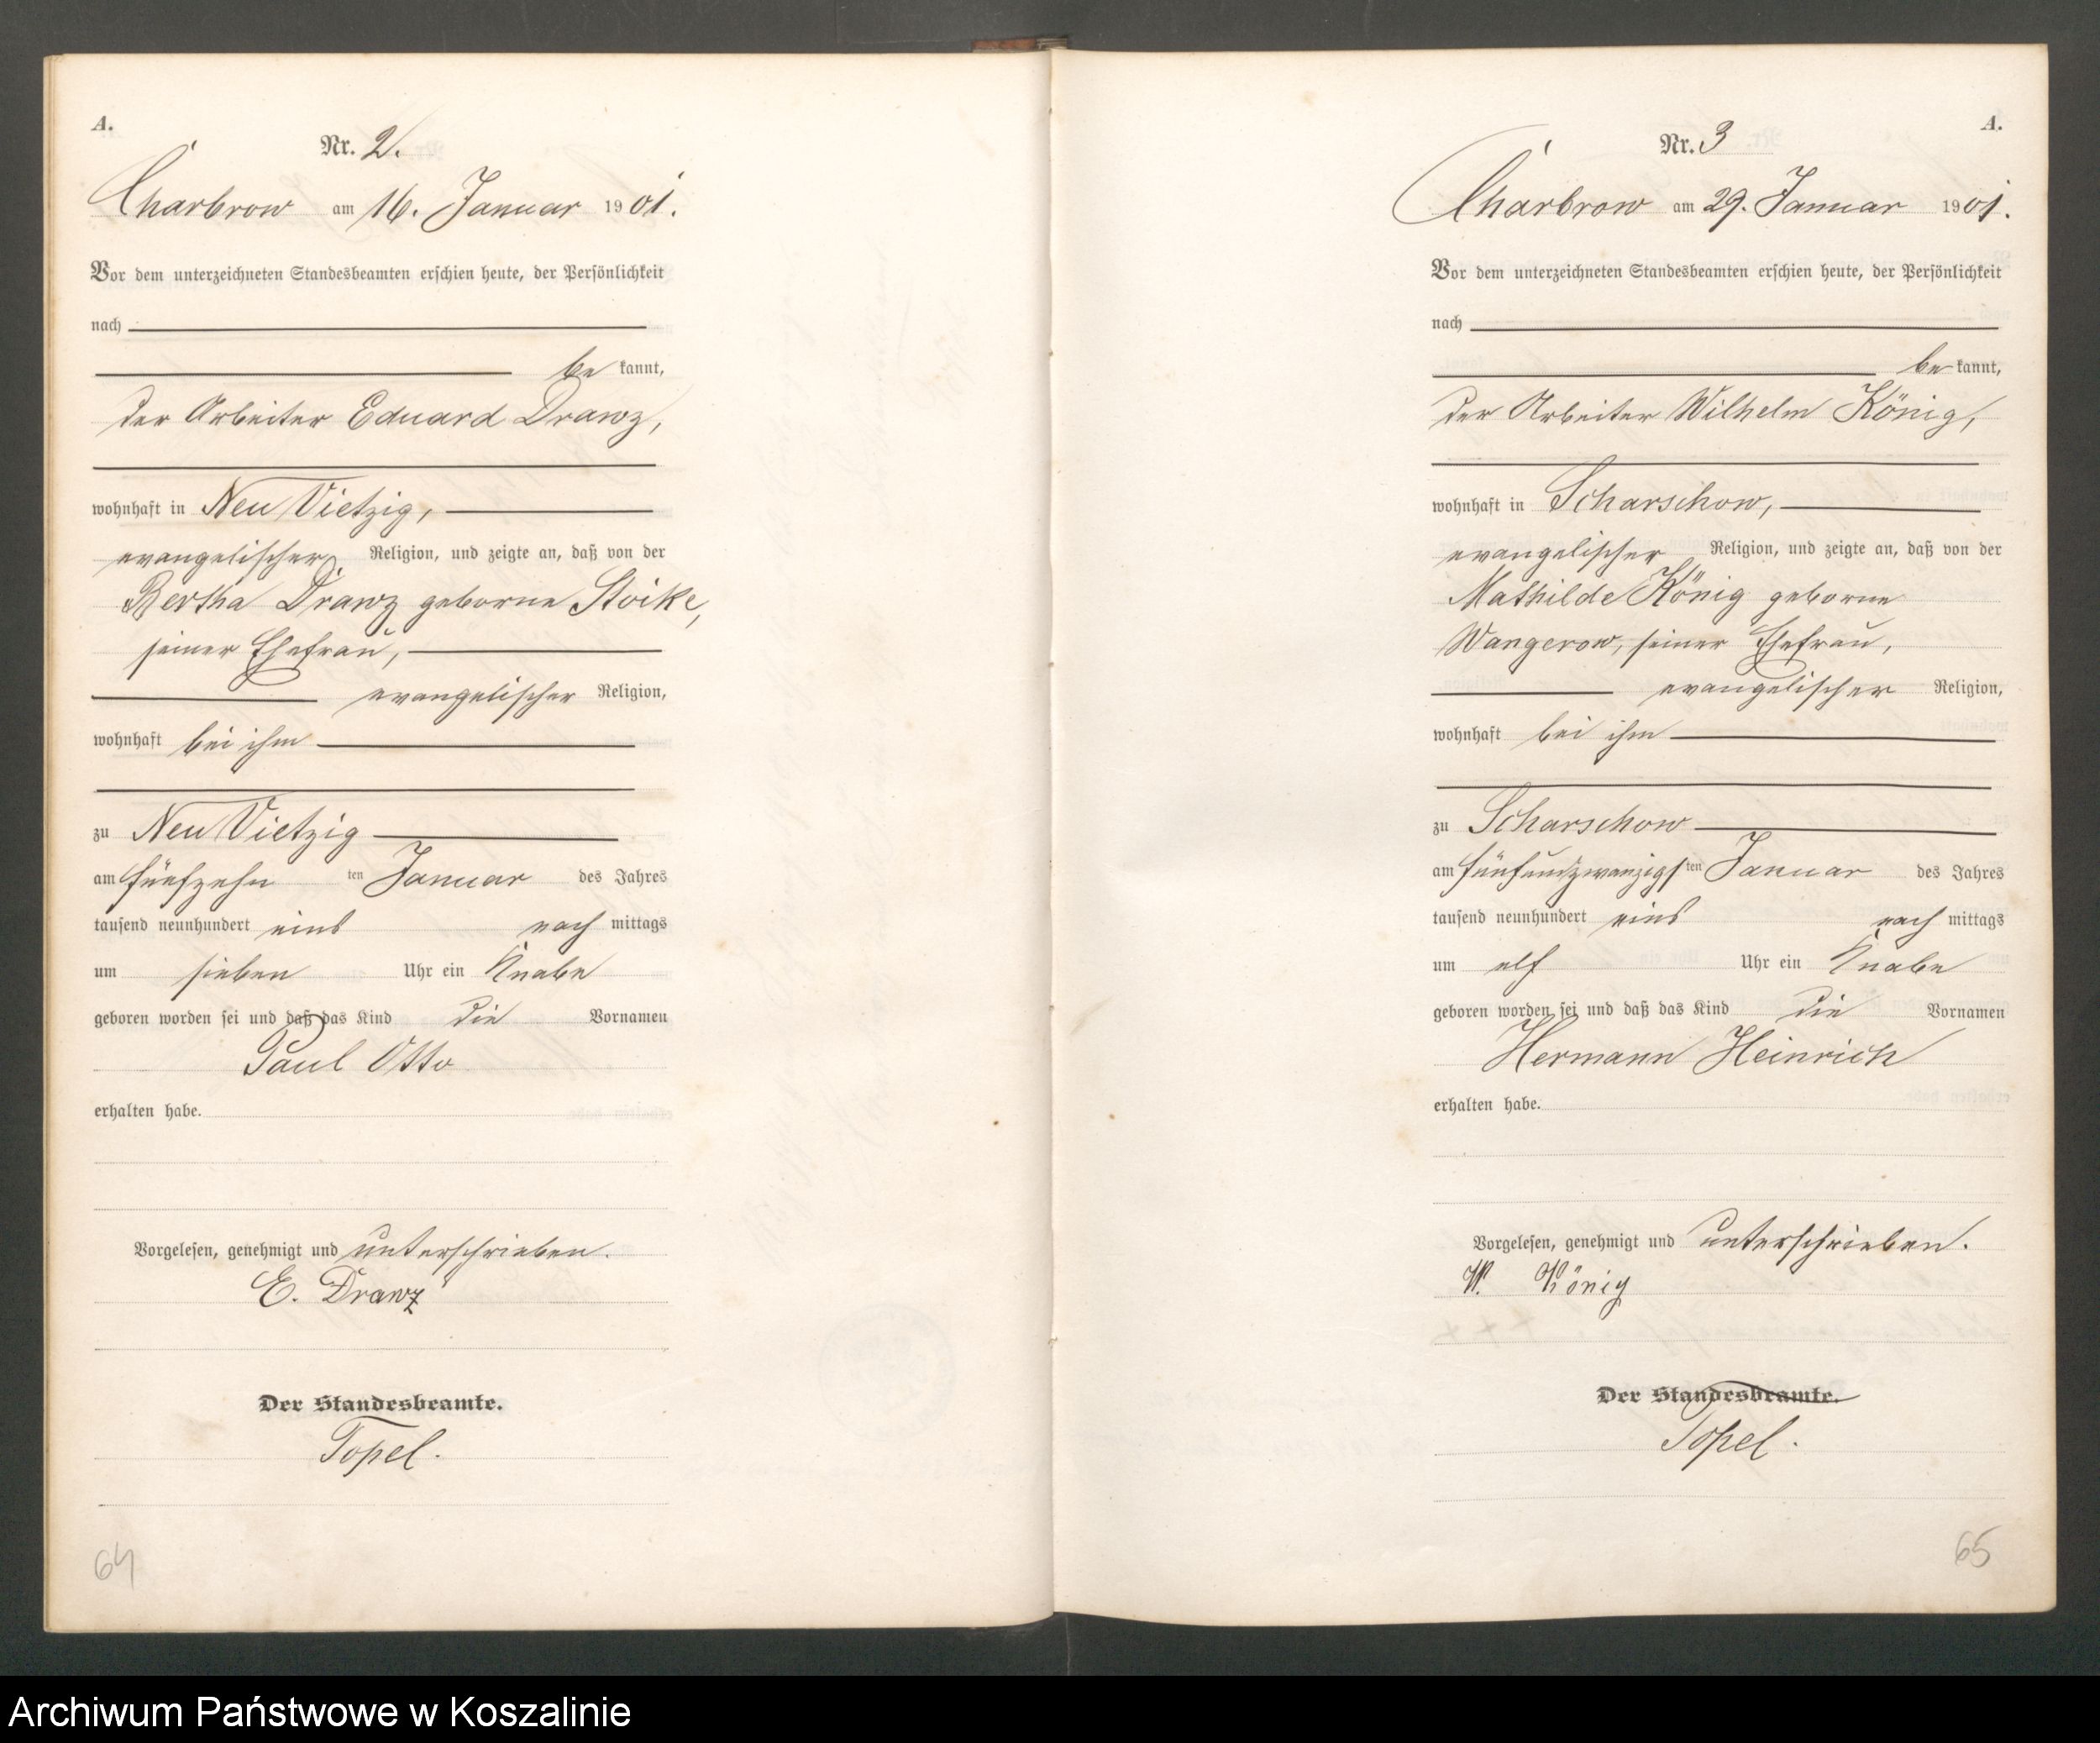 A.
Nr. 2.
Charbrow am 16. Januar 1901.
Vor dem unterzeichneten Standesbeamten erschien heute, der Persönlichkeit
nach
be kannt,
der Arbeiter Eduard Drawz,
wohnhaft in Neu Vietzig,
evangelischer Religion, und zeigte an, daß von der
Bertha Drawz geborne Stoike,
seiner Ehefrau,
evangelischer Religion,
wohnhaft bei ihm
zu Neu Vietzig
am fünfzehn ten Januar des Jahres
tausend neunhundert eins nach mittags
um sieben Uhr ein Knabe
geboren worden sei und daß das Kind die Vornamen
Paul Otto
erhalten habe.
Vorgelesen, genehmigt und unterschrieben.
E. Drawz
Der Standesbeamte.
Topel.
64
A.
Nr. 3
Charbrow am 29. Januar 1901.
Vor dem unterzeichneten Standesbeamten erschien heute, der Persönlichkeit
nach
be kannt,
der Arbeiter Wilhelm König,
wohnhaft in Scharschow,
evangelischer Religion, und zeigte an, daß von der
Mathilde König geborne
Wangerow, seiner Ehefrau,
evangelischer Religion,
wohnhaft bei ihm
zu Scharschow
am fünfundzwanzigsten Januar des Jahres
tausend neunhundert eins nach mittags
um elf Uhr ein Knabe
geboren worden sei und daß das Kind die Vornamen
Hermann Heinrich
erhalten habe.
Vorgelesen, genehmigt und unterschrieben.
W. König
Der Standesbeamte.
Topel.
65
Archiwum Państwowe w Koszalinie